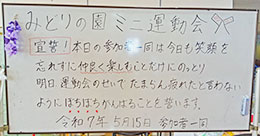 みどりの園ミニ運動会
宣誓！本日の参加者一同は今日も笑顔を
忘れずに仲良く楽しむことだけにのっとり
明日運動会のせいでたまらん疲れたと言わない
ようにぼちぼちがんばることを誓います。
令和7年5月15日参加者一同